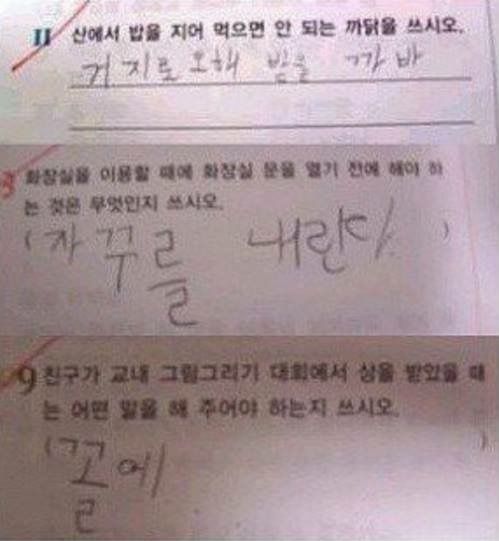 11 산에서 밥을 지어 먹으면 안 되는 까닭을 쓰시오.
거지로 오해 받을 까바
8 화장실을 이용할 때에 화장실 문을 열기 전에 해야 하
는 것은 무엇인지 쓰시오.
( 자꾸를 내린다 )
9 친구가 교내 그림그리기 대회에서 상을 받았을 때
는 어떤 말을 해 주어야 하는지 쓰시오.
( 꼴에 )